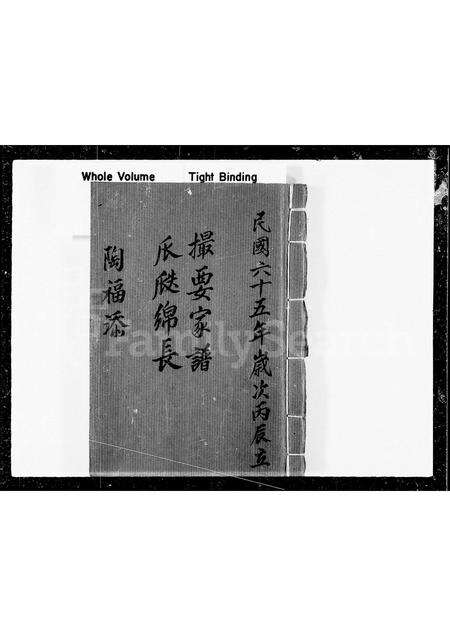 Whole Volume Tight Binding
民國六十五年歲次丙辰立
撮要家譜
瓜瓞綿長
陶福添
FamilySearch